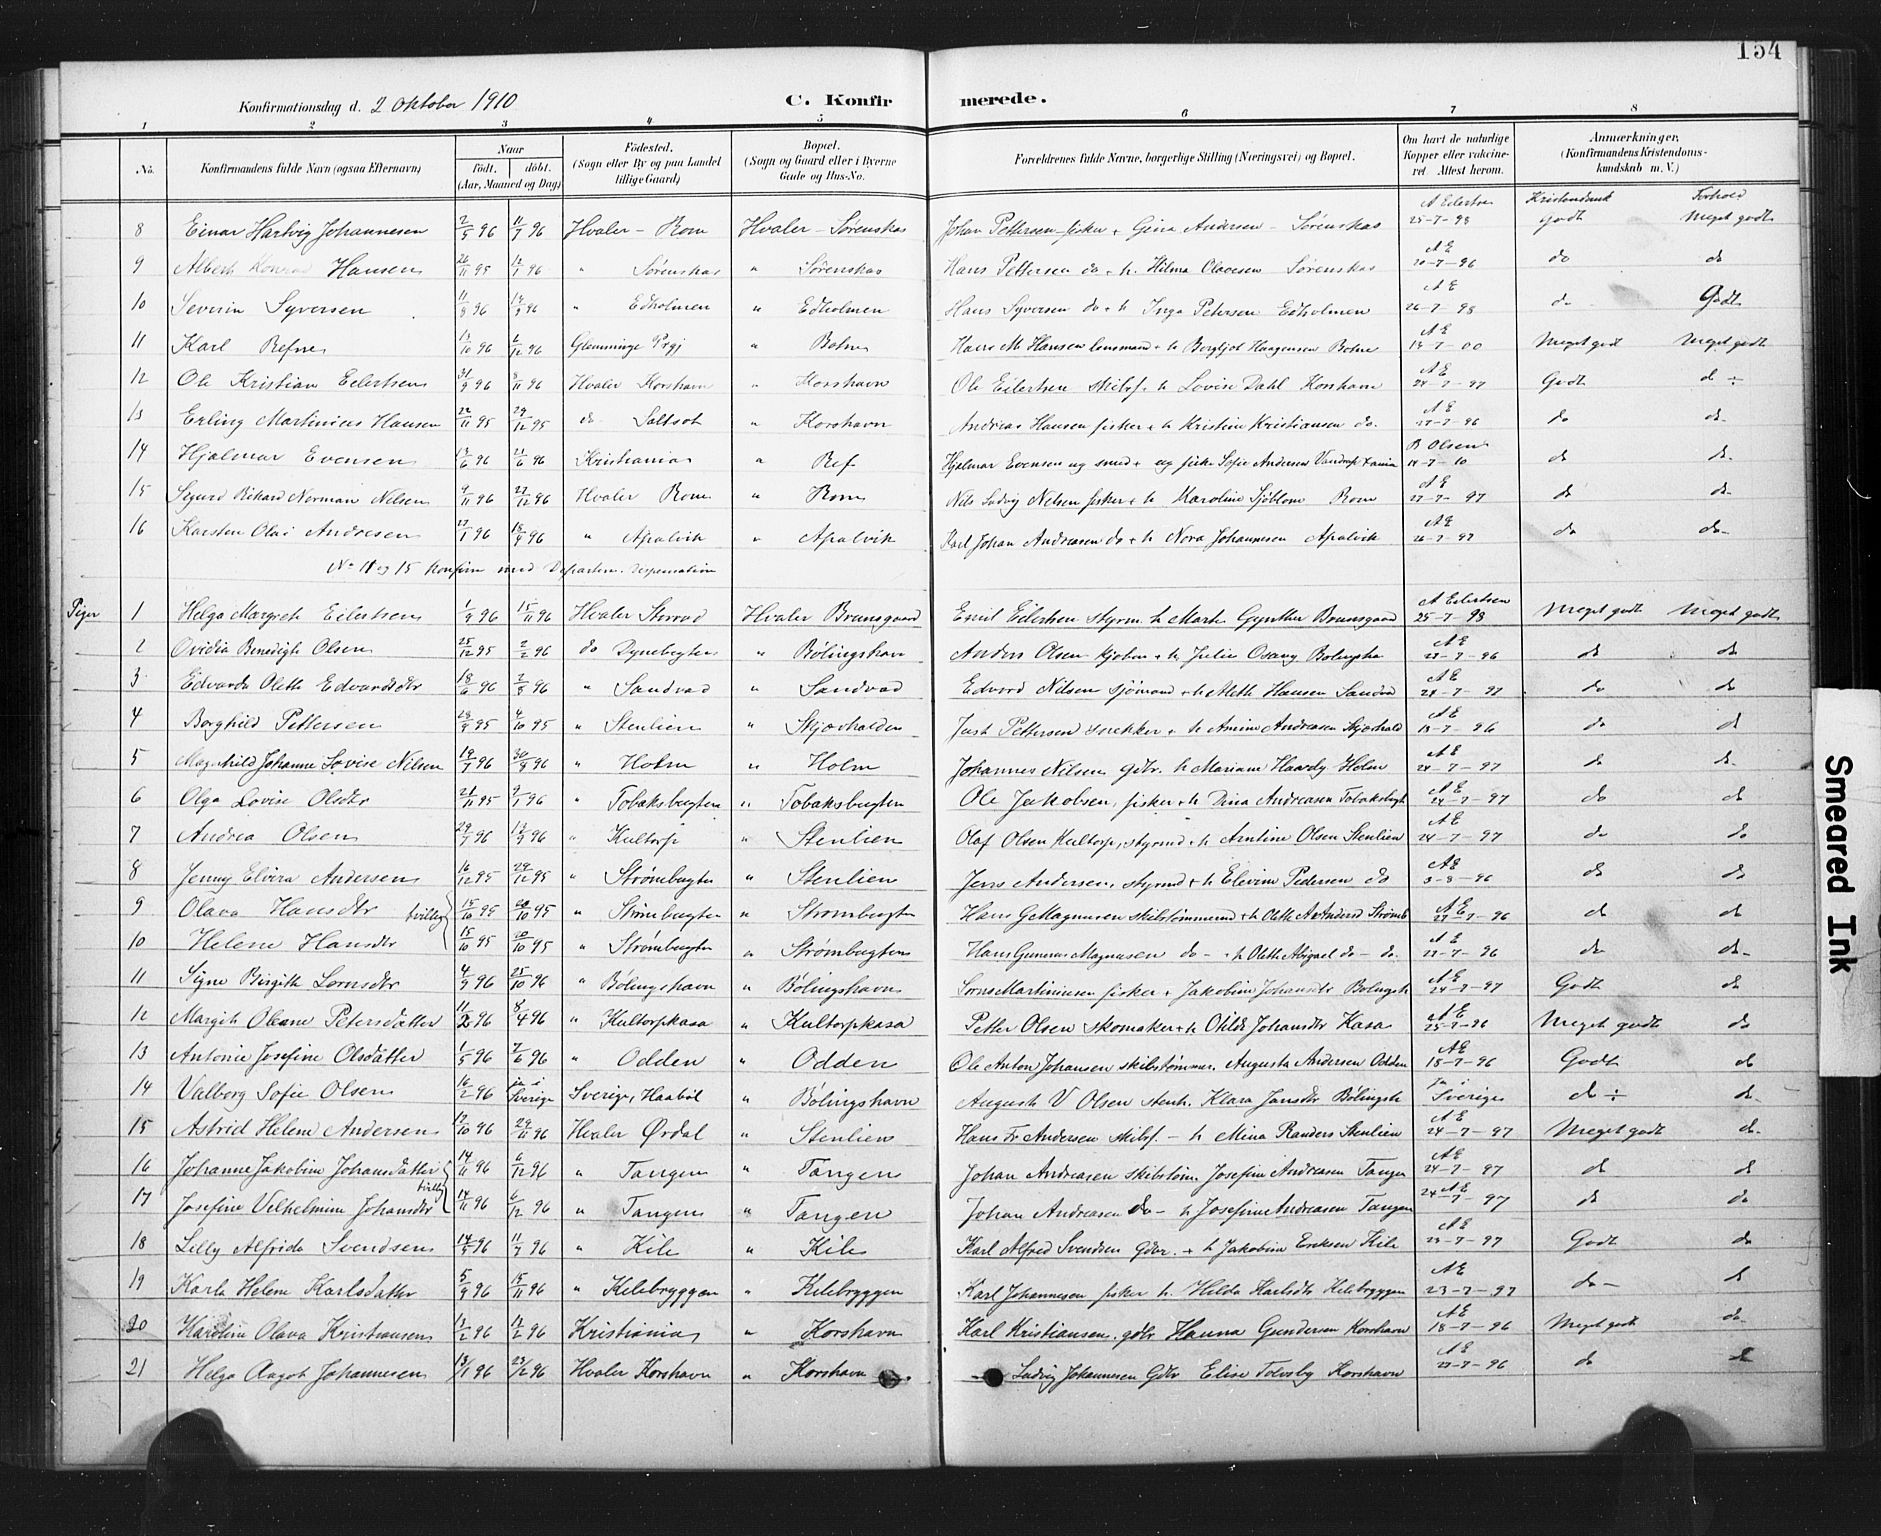 154
Konfirmationsdag d. 2 Oktober 1910 C. Konfirmerede.
1 2 3 4 5 6 7 8
No. Konfirmandens fulde Navn (ogsaa Efternavn) Naar født. døbt. (Aar, Maaned og Dag) Fødested. (Sogn eller By og paa Landet tillige Gaard) Bopæl. (Sogn og Gaard eller i Byerne Gade og Hus-No. Forældrenes fulde Navne, borgerlige Stilling (Næringsvei) og Bopæl. Om havt de naturlige Kopper eller vaccineret. Attest herom. Anmærkninger, (Konfirmandens Kristendomskundskab m. V.)
Kristendomk Forhold
8 Einar Hartvig Johannesen 2/5 96 11/7 96 Hvaler - Rom Hvaler - Sørenskas Johan Pettersen fisker + Gina Andersen - Sørenskas A Eilertsen 25-7-98 godt meget godt
9 Albert Konrad Hansen 26/11 95 12/1 96 " Sørenskas " Sørenskas Hans Pettersen do + h. Hilma Olavesen Sørenskas AE 20-7-96 do do
10 Severin Syversen 11/8 96 " Edholmen " Edholmen Hans Syversen do + h Inga Petersen Edholmen AE 26-7-98 do Godt
11 Karl Refne 13/10 96 6/12 96 Glemminge Prgj " Botne Hans M Hansen lensmand + h Bergljot Haagensen Botne AE 13-7-00 Meget godt Meget godt
12 Ole Kristian Eilertsen 31/9 96 8/11 96 Hvaler Korshavn " Korshavn Ole Eilertsen skibsf. + h Lovise Dahl Korshavn AE 24-7-97 Godt do ÷
13 Erling Martinius Hansen 22/11 95 29/12 95 do Saltsot " Korshavn Andreas Hansen fisker + h Kristine Kristiansen do. AE 27-7-96 do do
14 Hjalmar Evensen 14/6 96 21/6 96 Kristiania " Ref Hjalmar Evensen ug smed + ug pike Sofie Andersen B Olsen 14-7-10 do do
15 Sigurd Rikard Norman Nilsen 9/11 96 27/12 96 Hvaler Rom " Rom Nils Ludvig Nilsen fisker + h Karoline Sjöblom Rom AE 27-7-97 do do
16 Karsten Olai Andresen 27/1 96 18/9 96 " Apalvik " Apalvik Karl Johan Andreasen do + h Nora Johannesen Apalvik AE 26-7-97 do do
No 11 og 15 konfirm med Departem. dispensation
Piger 1 Helga Margreth Eilertsen 1/9 96 15/11 96 Hvaler Storrød Hvaler Brunsgaard Emil Eilertsen styrm. h Marte Gynther Brunsgaard A Eilertsen 25-7-98 Meget godt Meget godt
2 Ovidia Benedigte Olsen 25/12 95 2/2 96 do Dynebugten " Bølingshavn Anders Olsen + h Julie Bølingsha AE 27-7-96 do do
3 Edvarda Oleth Edvardsdtr 18/6 96 2/8 96 " Sandvad " Sandvad Edvard Nilsen sjömand + h Aleth Hansen Sandvad AE 24-7-97 do do
4 Borghild Pettersen 28/9 95 4/10 95 " Stenlien " Skjærhalden Just Pettersen snekker + h Amine Andreasen Skjærhald AE 18-7-96 do do
5 Magnhild Johanne Lovise Nilsen 19/7 96 30/8 96 " Holm " Holm Johannes Nilsen gdbr. h Mariane Haardy Holm AE 24-7-97 do do
6 Olga Lovise Olsdtr 21/11 95 2/1 96 " Tobaksbugten " Tobaksbugten Ole Jakobsen, fisker + h Dina Andreasen Tobaksbugt AE 24-7-97 do do
7 Andrea Olsen 29/7 96 " Kultorp " Stenlien Olaf Olsen Kultorp, styrmd + h Antine Olsen Stenlien AE 24-7-97 do do
8 Jenny Elvira Andersen 16/12 95 29/12 95 " Strømbugten " Stenlien Jens Andersen, styrmd + h Elevine Pedersen do AE 3-8-96 do do
9 Olava Hansdtr tvilling 15/10 95 20/10 95 " Strømbugten " Strømbugten Hans G Magnusen skibstømmermd + h Oleth A Andersd Strømb AE 27-7-96 do do
10 Helene Hansdtr 15/10 95 20/10 95 " Strømbugten " Strømbugten Hans Gunerus Magnusen do - + h Oleth Abigael do - do. AE 27-7-96 do do
11 Signe Birgitte Lornsdtr 4/9 96 25/10 96 " Bølingshavn " Bølingshavn Lorns Martiniusen fisker + Jakobine Johansdtr Bølingsh AE 24-7-97 Godt do
12 Margit Oleane Petersdatter 11/2 96 8/4 96 " Kultorpkasa " Kultorpkasa Petter Olsen skomaker + h Otilde Johansdtr Kasa AE 25-7-96 Meget godt do
13 Antonie Josefine Olsdatter 1/5 96 7/6 96 " Odden " Odden Ole Anton Johansen skibstømmer. Augusta Andersen Odden AE 18-7-96 Godt do
14 Valborg Sofie Olsen 16/2 96 ja i Sverige Sverige, Haaböl " Bølingshavn August V Olsen stenh. Klara Jansdtr Bölingsh Ja i Sverige do ÷ do
15 Astrid Helene Andersen 12/10 96 29/11 96 Hvaler Ørdal " Stenlien Hans Fr Andersen skibsf. - h Mina Randers Stenlien AE 24-7-97 Meget godt do
16 Johanne Jakobine Johansdatter 14/11 96 6/12 96 " Tangen " Tangen Johan Andreasen skibstøm. Josefine Andreasen Tangen AE 24-7-97 do do
17 Josefine Vilhelmine Johansdtr tvilling 14/11 96 6/12 96 " Tangen " Tangen Johan Andreasen do - h Josefine Andreasen Tangen AE 24-7-97 do do
18 Lilly Alfrida Svendsen 14/5 96 11/7 96 " Kile " Kile Karl Alfred Svendsen Gdbr. + h Jakobine Eriksen Kile AE 23-7-97 Godt do
19 Karla Helene Karlsdatter 5/9 96 15/11 96 " Kilebryggen " Kilebryggen Karl Johannesen fisker h. Hilda Karlsdtr Kilebryggen AE 23-7-97 do - do
20 Karoline Olava Kristiansen 13/2 96 Kristiania " Korshavn Karl Kristiansen. gdbr Hanna Gundersen Korshavn AE 18-7-96 Meget godt do
21 Helga Aagot Johannesen 13/1 96 23/2 96 Hvaler Korshavn " Korshavn Ludvig Johannesen Gdbr Elise Korshavn AE 27-7-96 do do
Smeared Ink